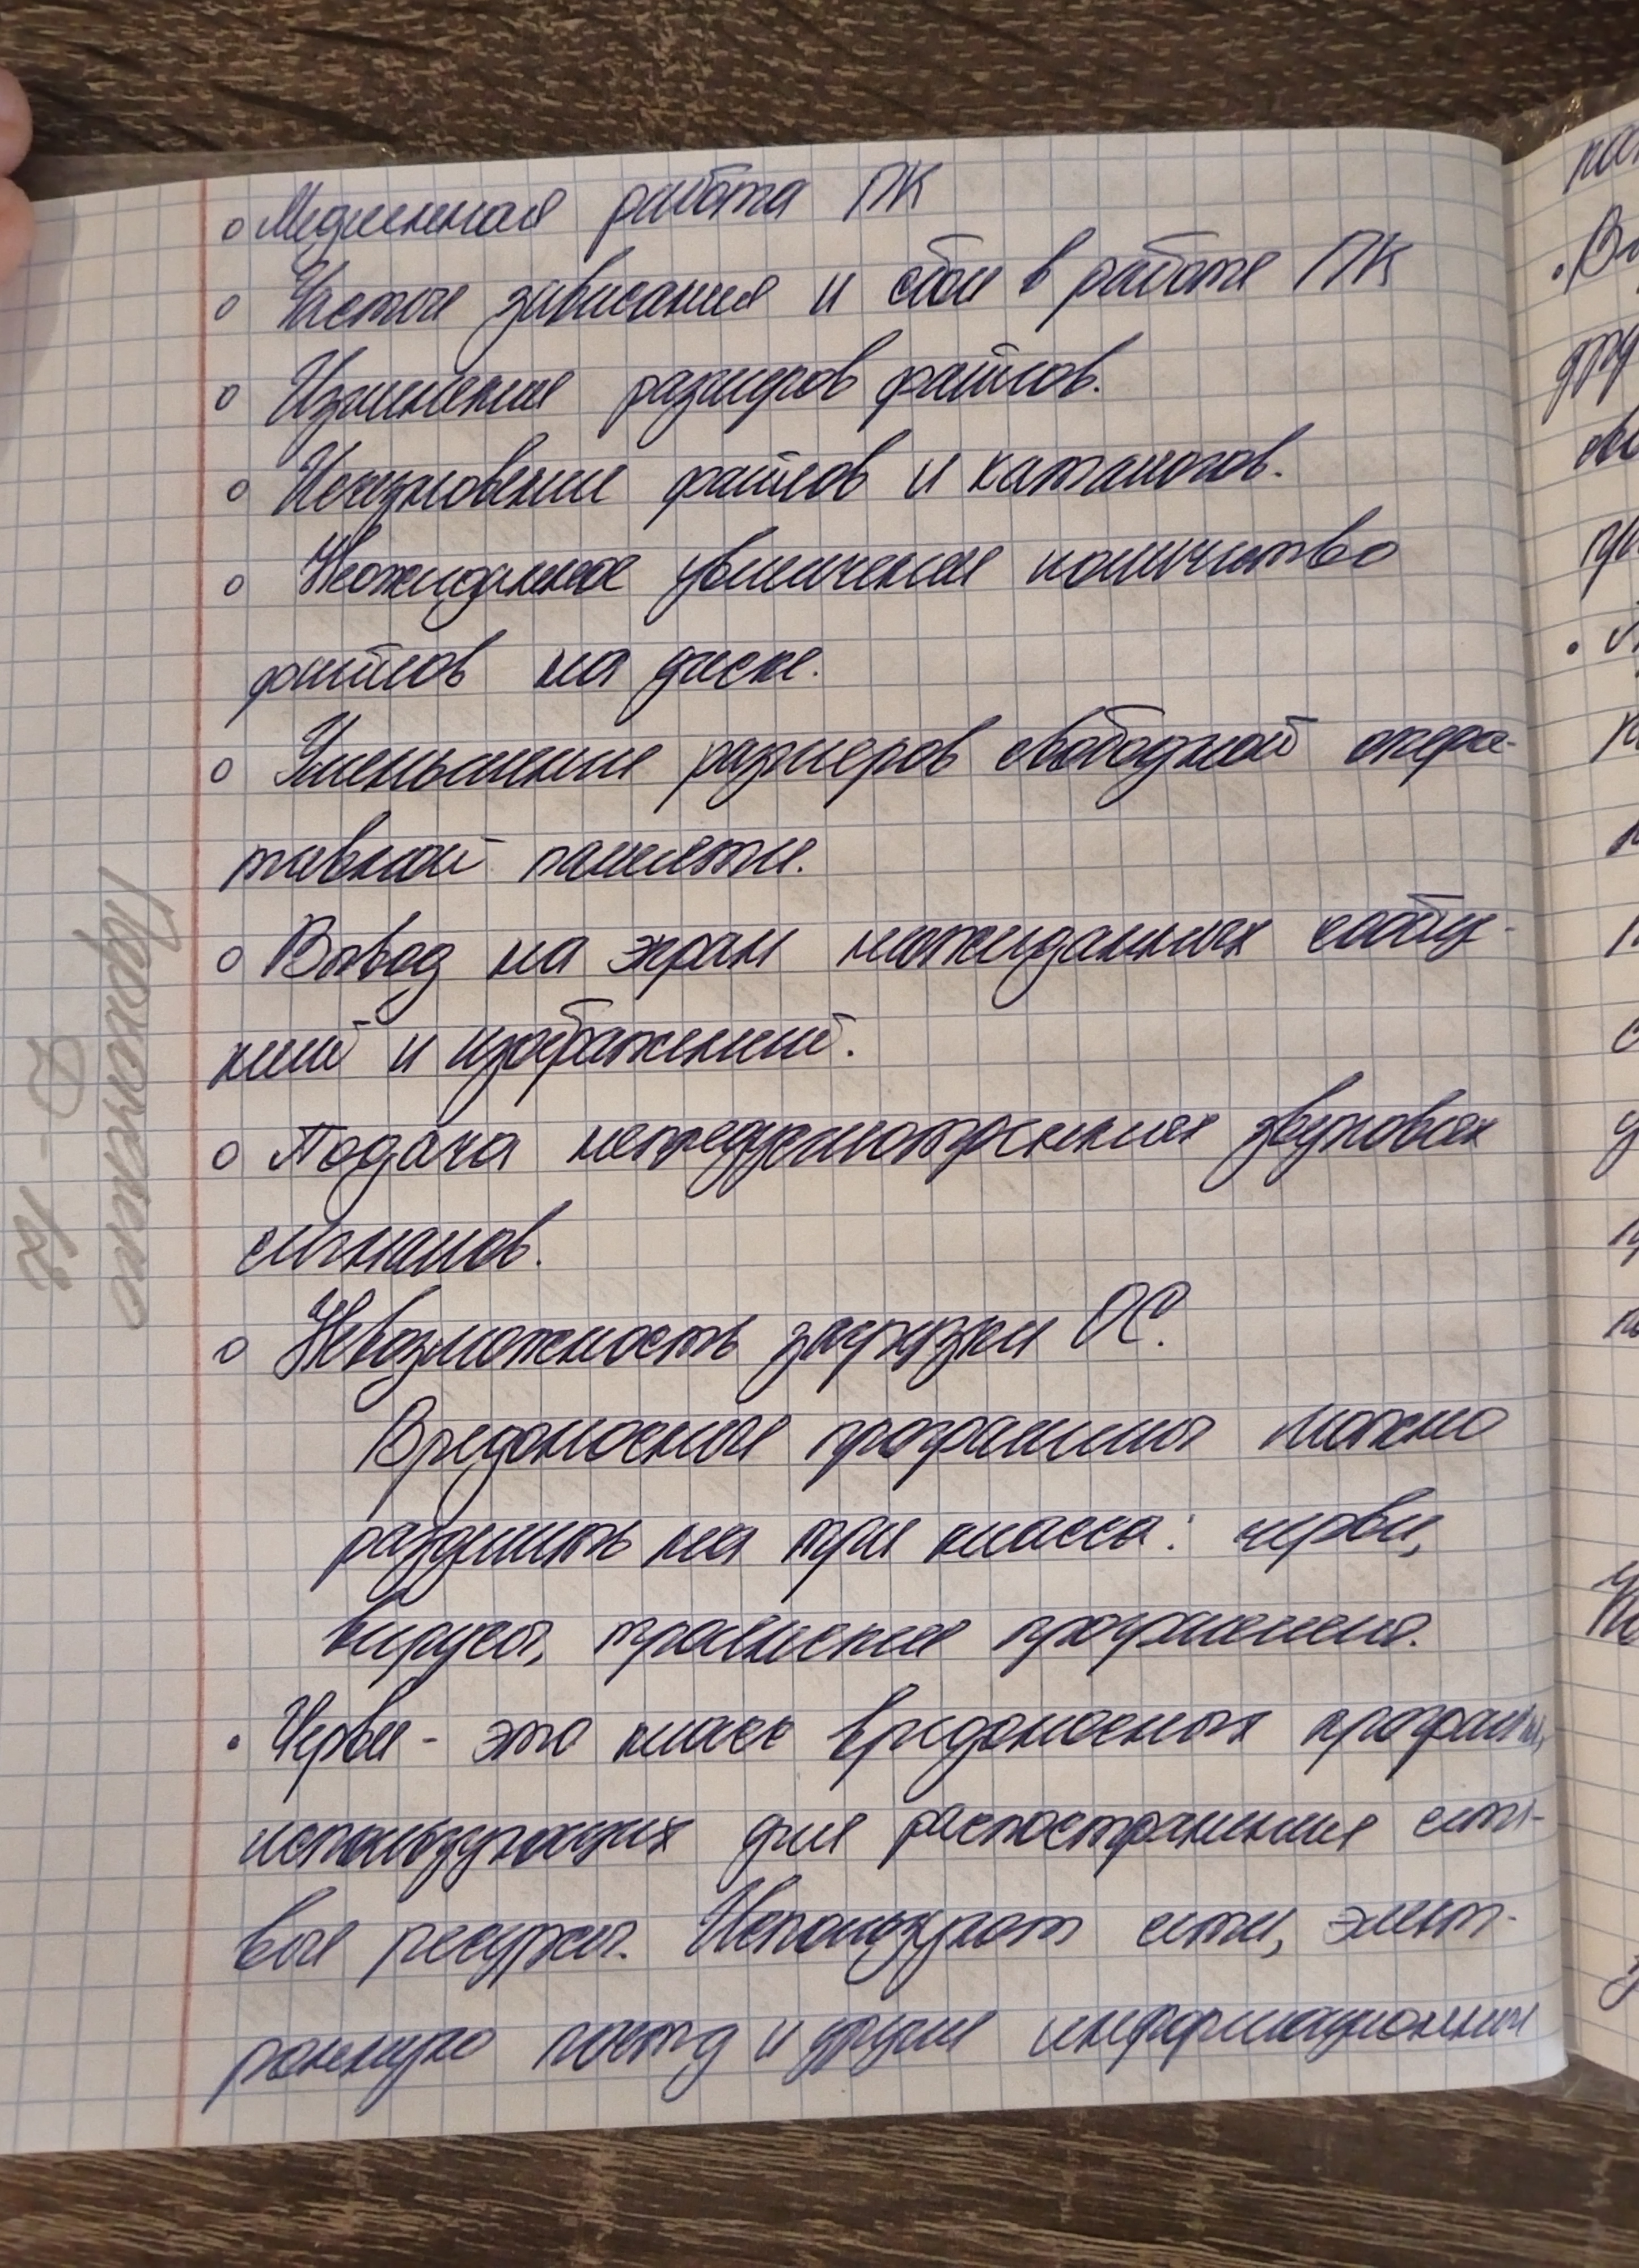 ◦ Медленная работа ПК
◦ Частые зависания и сбои в работе ПК
◦ Изменение размеров файлов.
◦ Исчезновение файлов и каталогов.
◦ Неожиданное увеличение количество
файлов на диске.
◦ Уменьшение размеров свободной опера-
тивной памяти.
◦ Вывод на экран неожиданных сообще-
ний и изображений.
◦ Подача непредусмотренных звуковых
сигналов.
◦ Невозможность загрузки ОС.
Вредоносные программы можно
разделить на три класса: черви,
вирусы, троянские программы.
• Черви - это класс вредоносных программ,
использующих для распостранения сете-
вые ресурсы. Используют сети, элект-
ронную почту и другие информационные